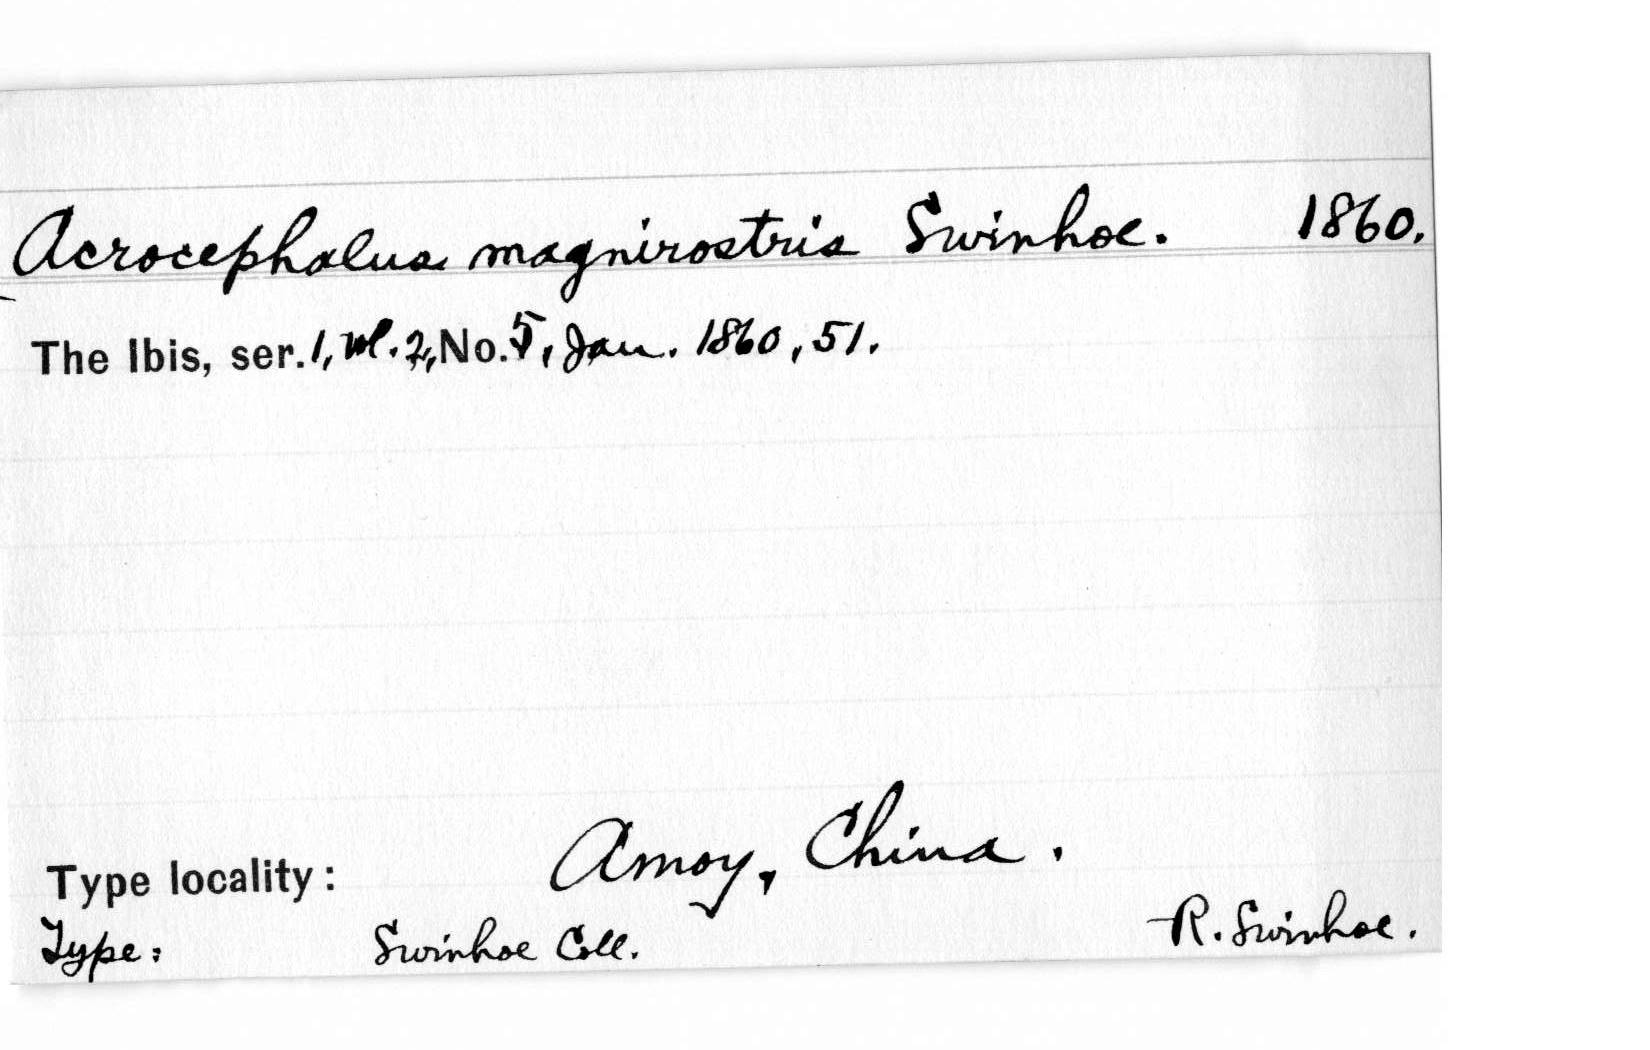 Acrocephalus magnirostris Swinhoe. 1860.
The Ibis, ser. 1, vol. 2, No. 5, Jan. 1860, 51.
Type locality: Amoy, China.
Type: Swinhoe Coll. R. Swinhoe.